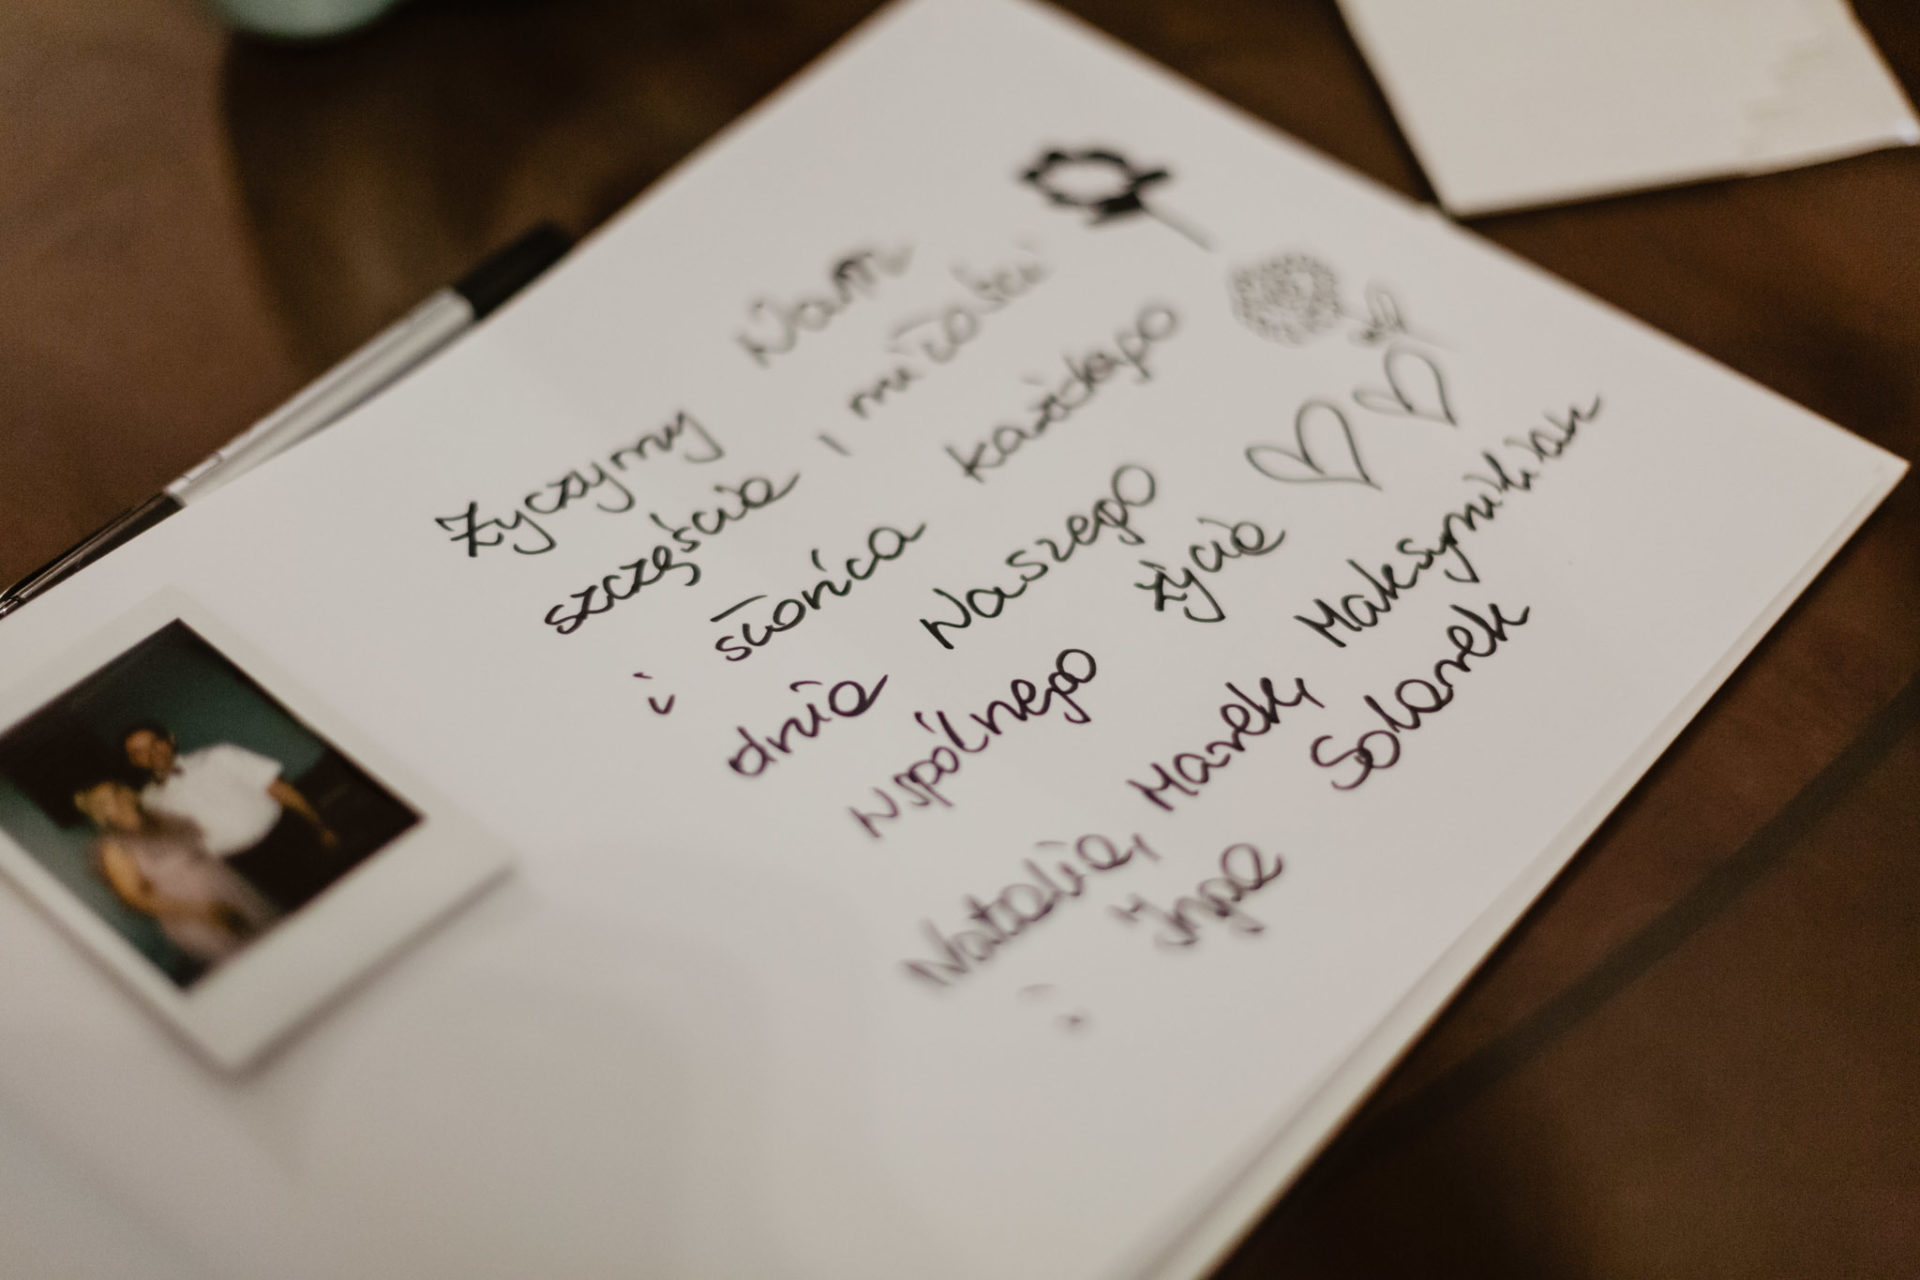 Życzymy Wam
szczęścia i miłości
i słońca każdego
dnia Waszego
wspólnego życia
Natalia, Marek, Maksymilian
i Inga Solarek